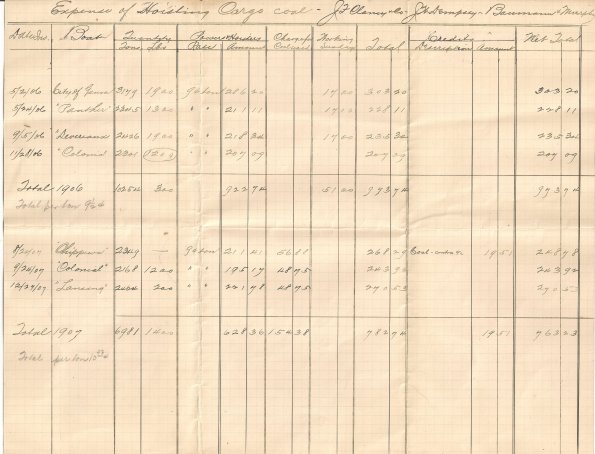 Expense of Hoisting Cargo coal - J.F. Clancy & Co. J.W. Dempsey - Baumann & Murphy
Date Boat Quantity Power & Hoisters Working Total Credits Net Total
Tons Lbs Rate Amount Description Amount
5/2/06 3179 1900 9¢ ton 286 20 17 00 303 20 303 20
5/24/06 "Panther" 2345 1300 " " 211 11 17 00 228 11 228 11
9/15/06 "Devereaux" 2426 1900 " " 218 34 17 00 235 34 235 34
11/28/06 "Colonial" 2301 1200 " " 207 09 207 09 207 09
Total 1906 10254 300 922 74 51 00 973 74 973 74
Total per ton 9½¢
8/24/07 "Chippewa" 2349 — 9¢ ton 211 41 56 88 268 29 19 51 248 78
9/26/07 "Colonial" 2168 1200 " " 195 17 48 75 243 92 243 92
12/27/07 "Lansing" 2464 200 " " 221 78 48 75 270 53 270 53
Total 1907 6981 1400 628 36 154 38 782 74 19 51 763 23
Total per ton